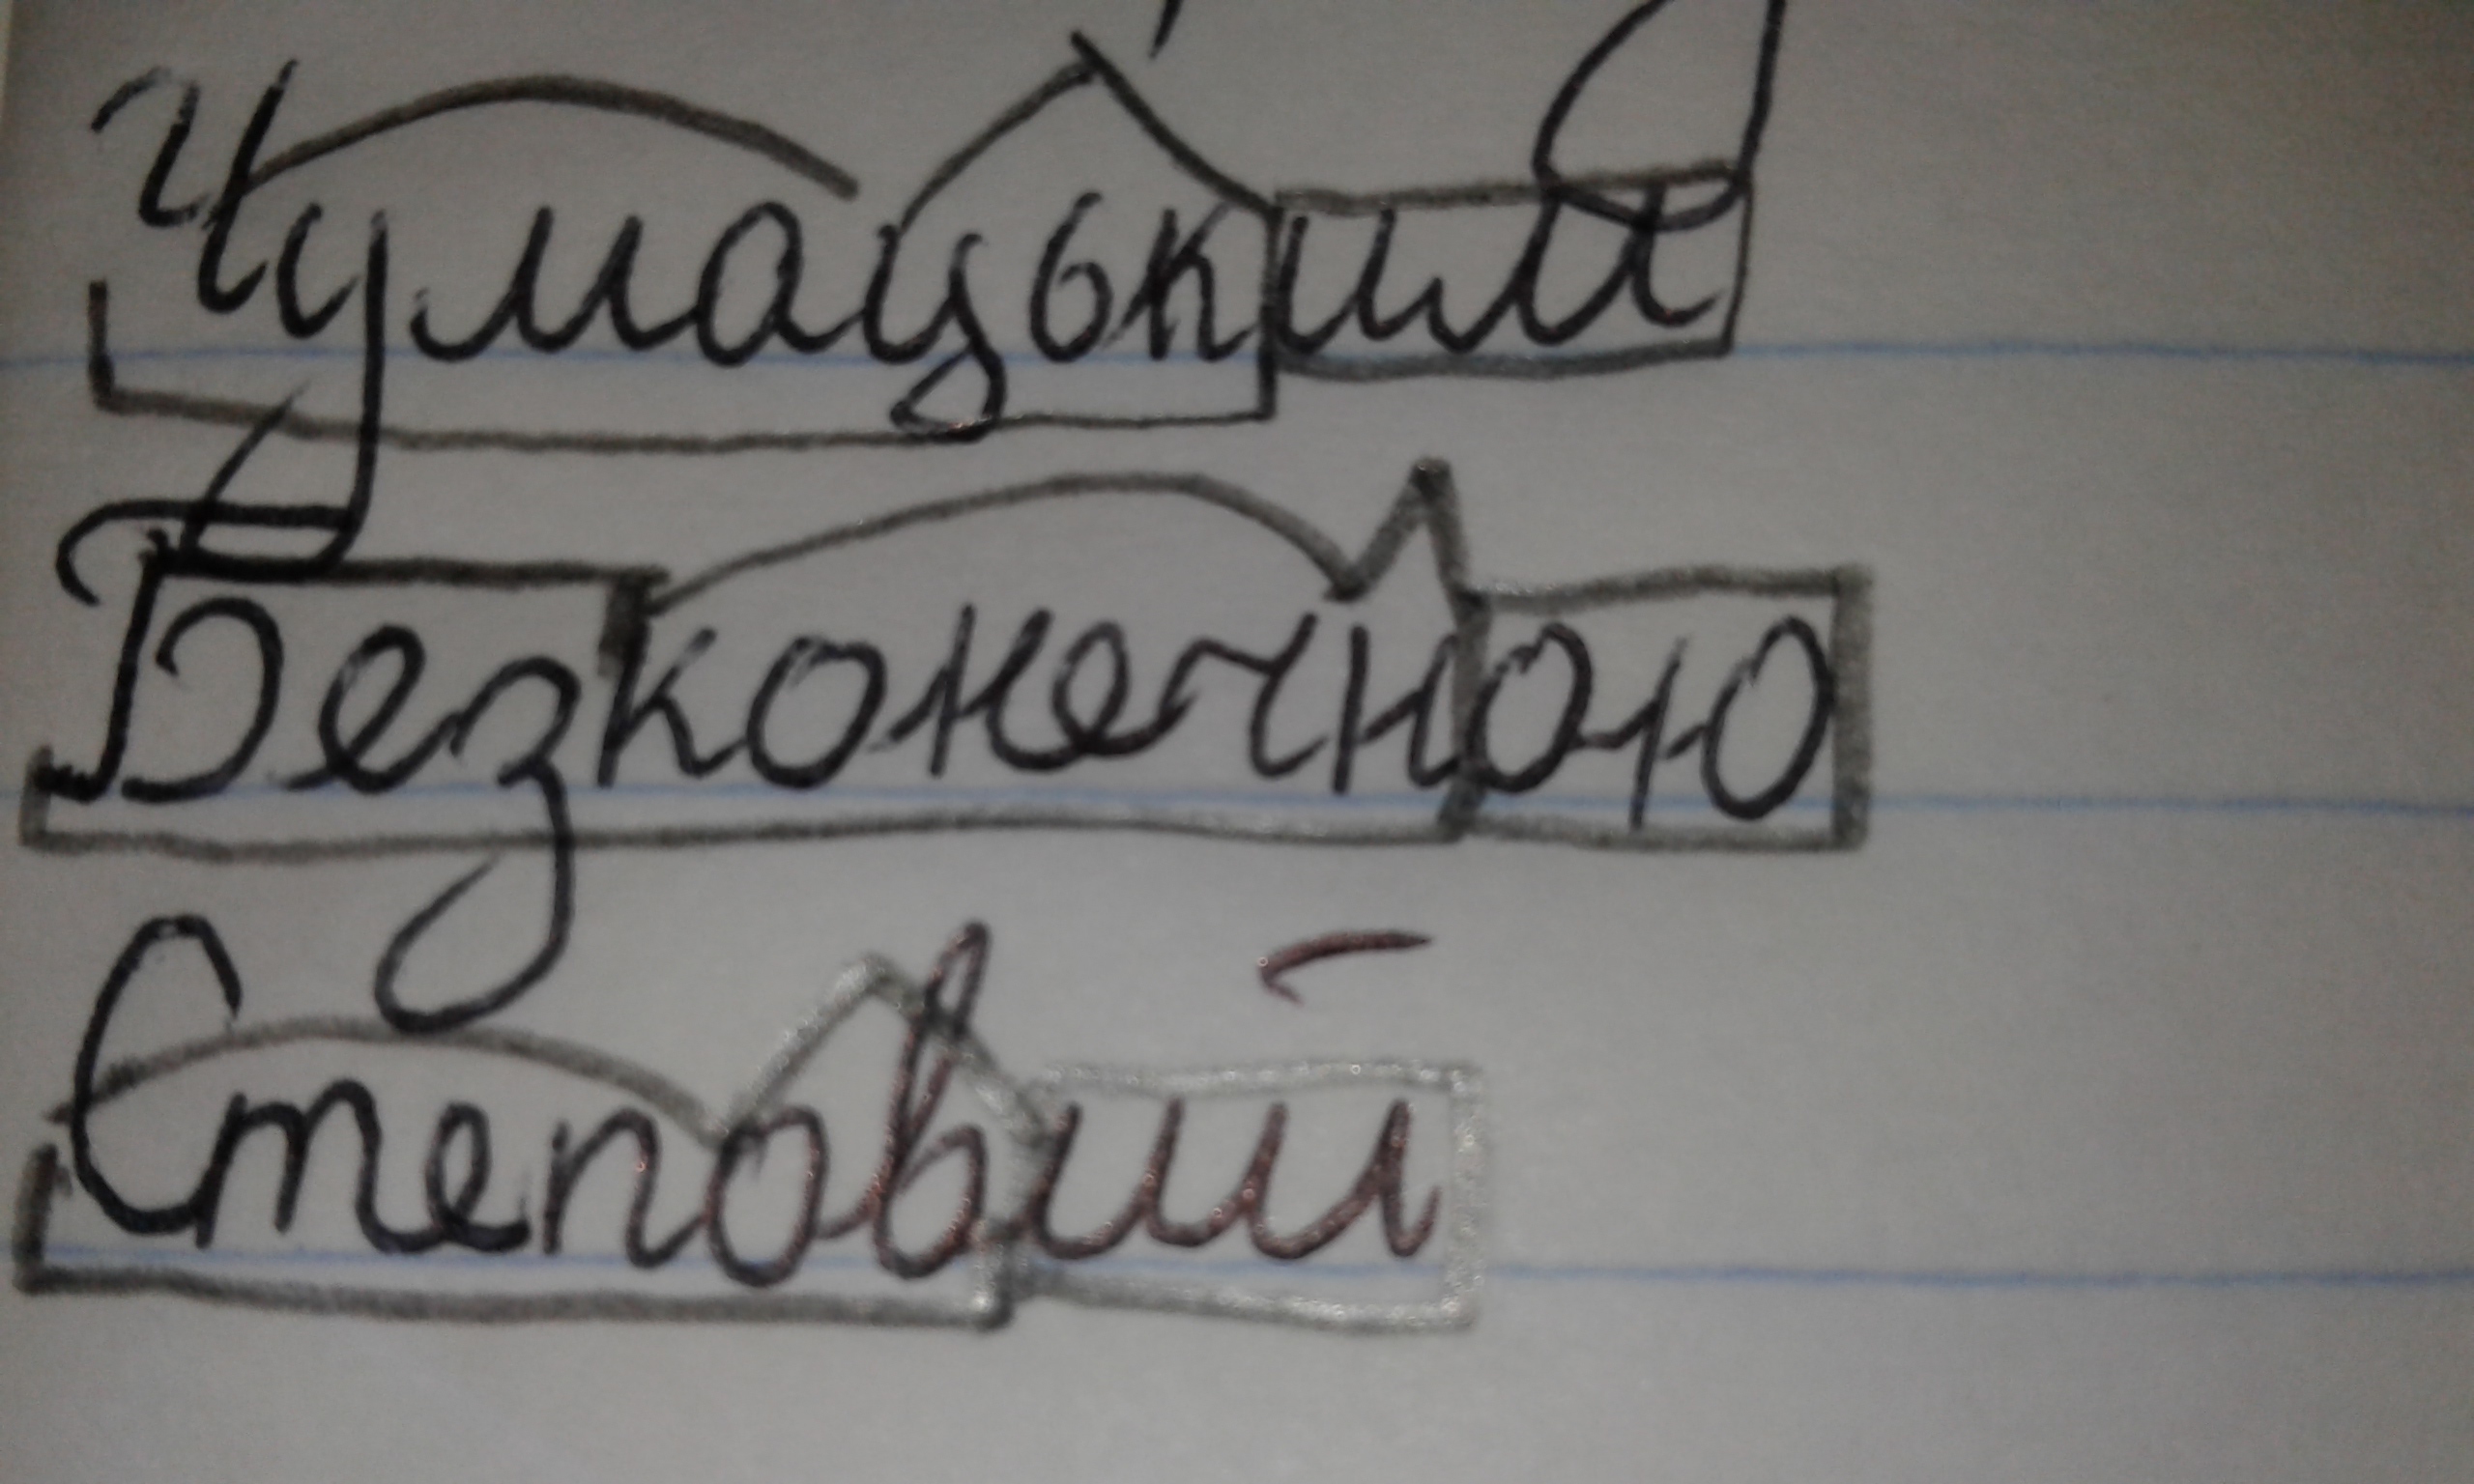 Чумацький
Безконечною
Степовий